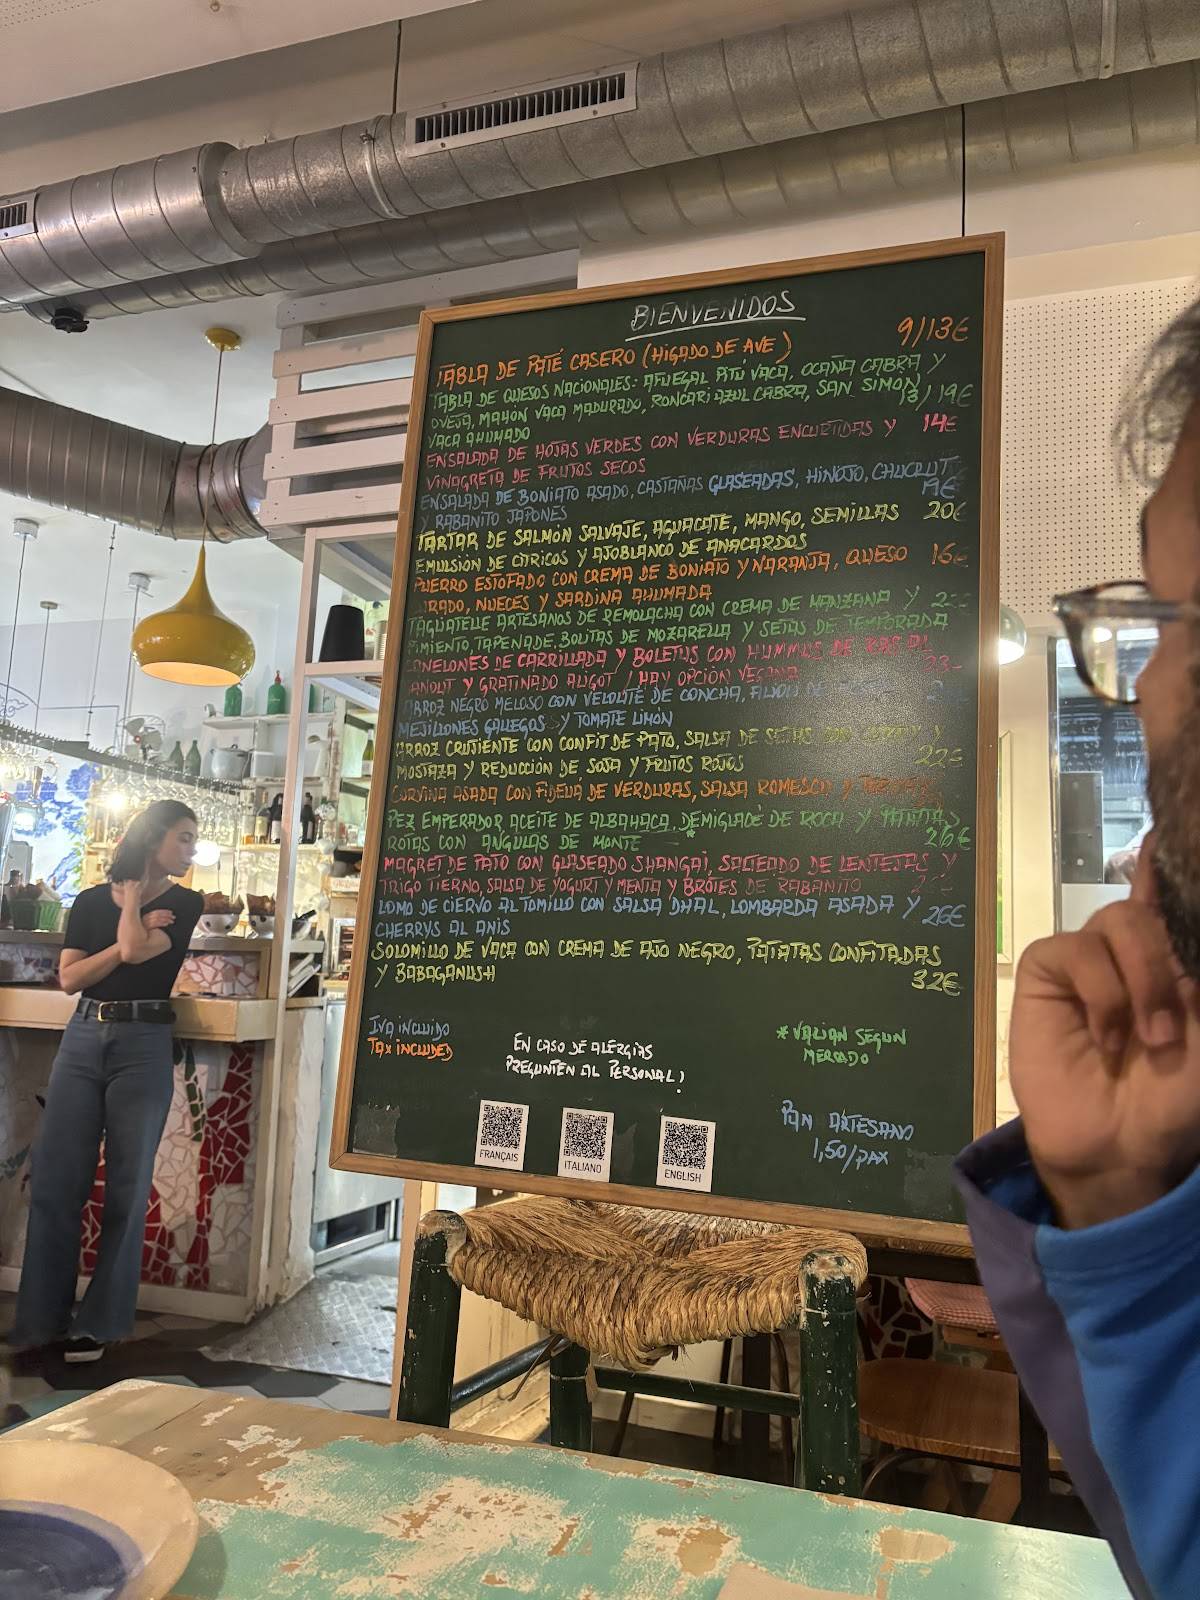 BIENVENIDOS
TABLA DE PATÉ CASERO (HIGADO DE AVE) 9/13€
TABLA DE QUESOS NACIONALES: AFUEGAL PITU VACA, OCAÑA CABRA Y
OVEJA, MAHÓN VACA MADURADO, RONCARI AZUL CABRA, SAN SIMON 13/19€
VACA AHUMADO
ENSALADA DE HOJAS VERDES CON VERDURAS ENCURTIDAS Y 14€
VINAGRETA DE FRUTOS SECOS
ENSALADA DE BONIATO ASADO, CASTAÑAS GLASEADAS, HINOJO, CHUCRUT
Y RABANITO JAPONES 19€
TARTAR DE SALMÓN SALVAJE, AGUACATE, MANGO, SEMILLAS 20€
EMULSION DE CITRICOS Y AJOBLANCO DE ANACARDOS
PUERRO ESTOFADO CON CREMA DE BONIATO Y NARANJA, QUESO 16€
CURADO, NUECES Y SARDINA AHUMADA
TAGLIATELLE ARTESANOS DE REMOLACHA CON CREMA DE MANZANA Y
PIMIENTO, TAPENADE, BOLITAS DE MOZARELLA Y SETAS DE TEMPORADA
CANELONES DE CARRILLADA Y BOLETUS CON HUMMUS DE RAS AL
HANOUT Y GRATINADO ALIGOT / HAY OPCIÓN VEGANA 23
ARROZ NEGRO MELOSO CON VELOUTE DE CONCHA, ALIOLI DE
MEJILLONES GALLEGOS Y TOMATE LIMÓN
ARROZ CRUJIENTE CON CONFIT DE PATO, SALSA DE SETAS CON Y
MOSTAZA Y REDUCCIÓN DE SOJA Y FRUTOS ROJOS 22€
CORVINA ASADA CON FIDEUÁ DE VERDURAS, SALSA ROMESCO Y
PEZ EMPERADOR, ACEITE DE ALBAHACA, DEMIGLACÉ DE ROCA Y PATATAS
ROTAS CON ANGULAS DE MONTE * 26€
MAGRET DE PATO CON GLASEADO SHANGAI, SALTEADO DE LENTEJAS Y
TRIGO TIERNO, SALSA DE YOGURT Y MENTA Y BROTES DE RABANITO
LOMO DE CIERVO AL TOMILLO CON SALSA DHAL, LOMBARDA ASADA Y 26€
CHERRYS AL ANIS
SOLOMILLO DE VACA CON CREMA DE AJO NEGRO, PATATAS CONFITADAS
Y BABAGANUSH 32€
IVA INCLUIDO
TAX INCLUDED
EN CASO DE ALERGIAS
PREGUNTEN AL PERSONAL!
* VARIAN SEGUN
MERCADO
PAN ARTESANO
1,50/PAX
FRANÇAIS
ITALIANO
ENGLISH